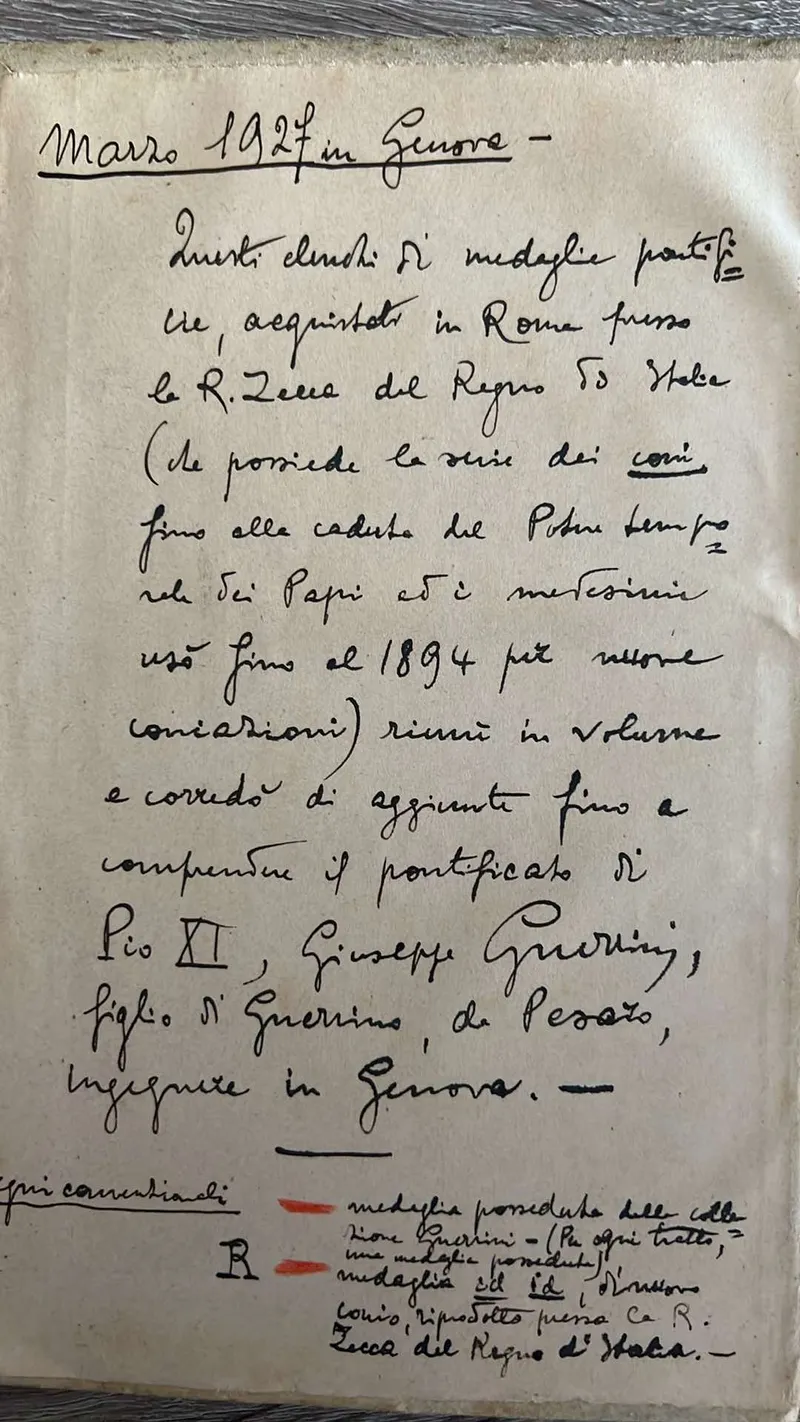 Marzo 1927 in Genova -
Questi elenchi di medaglie pontifi=
cie, acquistati in Roma presso
la R. Zecca del Regno di Italia
(che possiede la serie dei coni,
fino alla caduta del Potere tempo=
rale dei Papi ed i medesimi
usò fino al 1894 per nuove
coniazioni) riunì in volume
e corredò di aggiunte fino a
comprendere il pontificato di
Pio XI, Giuseppe Guerrini,
figlio di Guerrino, da Pesaro,
ingegnere in Genova. —
gni convenzionali
— medaglia posseduta dalla colle=
zione Guerrini - (Per ogni tratto,
una medaglia posseduta)
R — medaglia id id, di nuovo
conio, riprodotto presso la R.
Zecca del Regno d'Italia. —